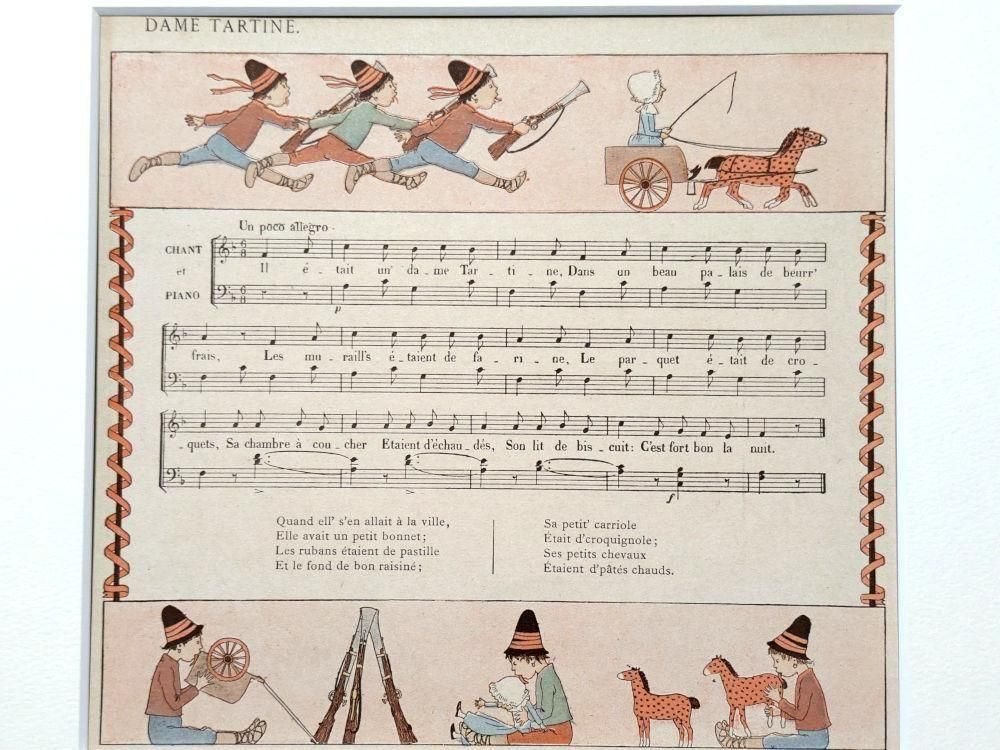 DAME TARTINE.
Un poco allegro.
CHANT
et
PIANO
Il é - tait un' da - me Tar - ti - ne, Dans un beau pa - lais de beurr'
p
frais, Les mu - raill's é - taient de fa - ri - ne, Le par - quet é - tait de cro -
- quets, Sa chambre à cou - cher Etaient d'échau - dés, Son lit de bis - cuit: C'est fort bon la nuit.
f
Quand ell' s'en allait à la ville,
Elle avait un petit bonnet;
Les rubans étaient de pastille
Et le fond de bon raisiné;
Sa petit' carriole
Était d'croquignole;
Ses petits chevaux
Étaient d'pâtés chauds.